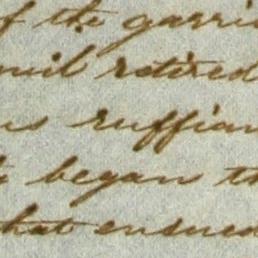 f the garri
uncil retired
us ruffian
began th
that ensued